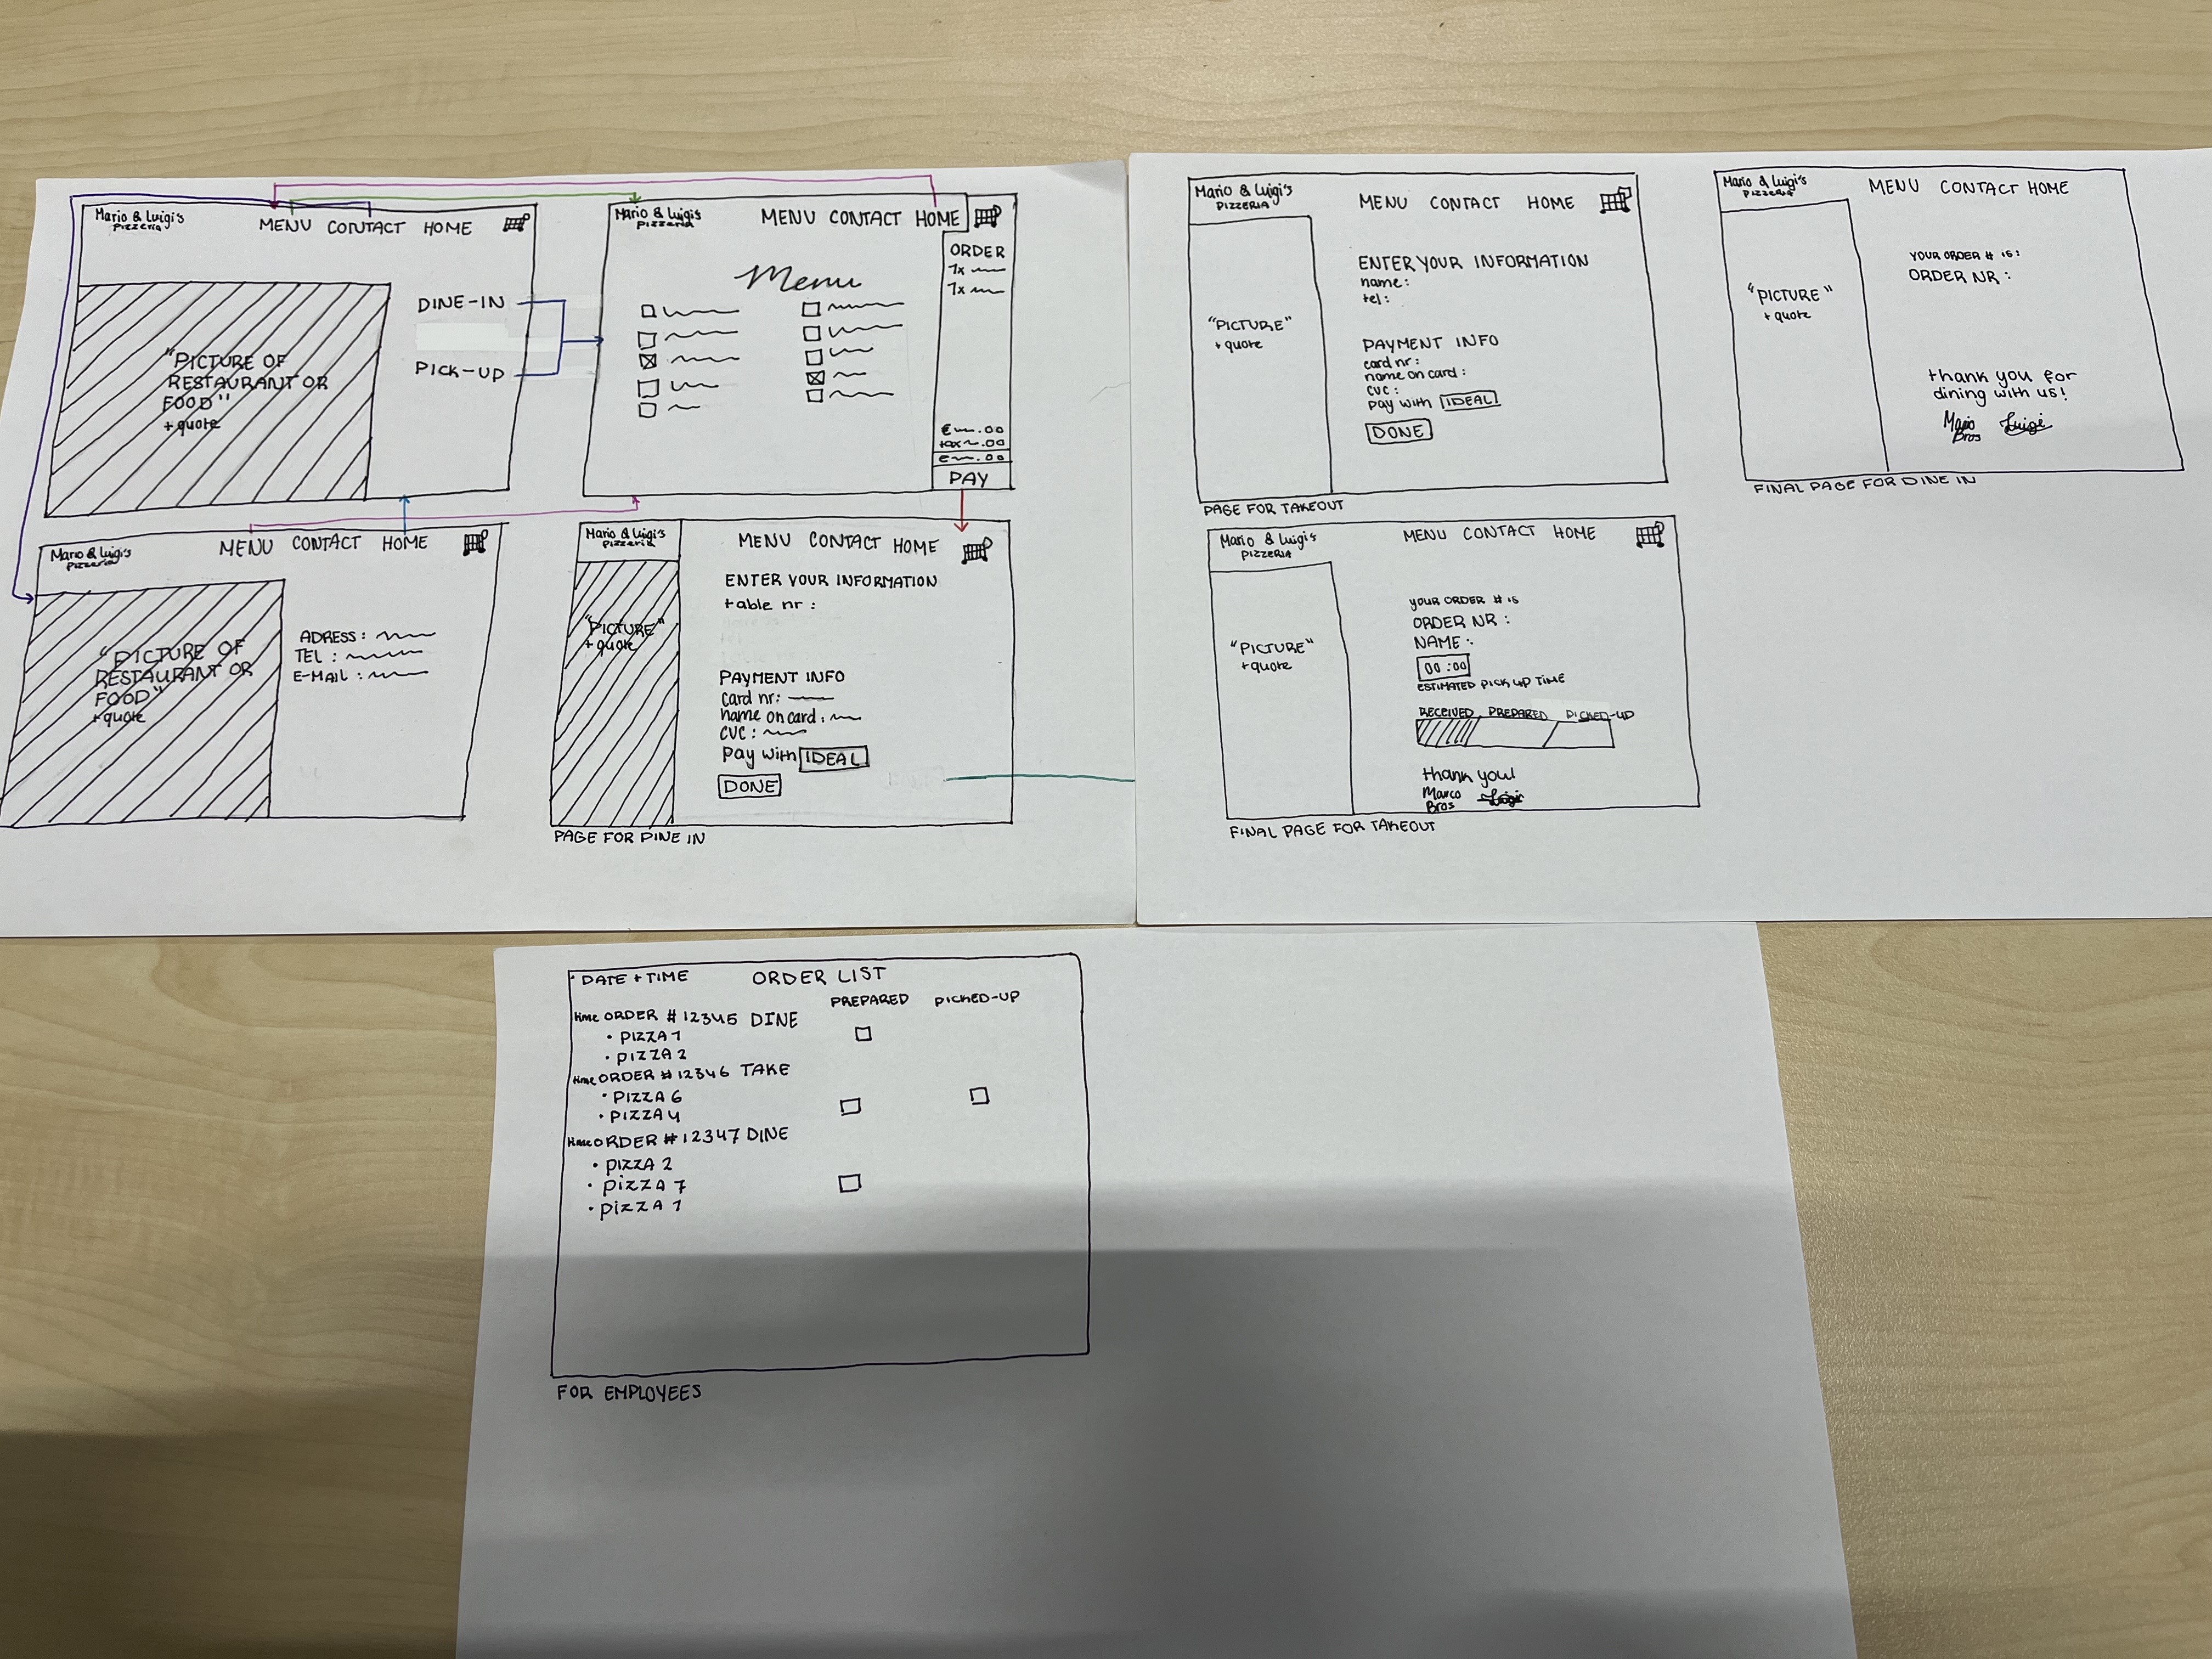 Mario & Luigi's
Pizzeria
MENU CONTACT HOME
"PICTURE OF
RESTAURANT OR
FOOD"
+ quote
DINE-IN
PICK-UP
Mario & Luigi's
Pizzeria
MENU CONTACT HOME
Menu
ORDER
1x
1x
€ .00
tax .00
€ .00
PAY
Mario & Luigi's
Pizzeria
MENU CONTACT HOME
"PICTURE OF
RESTAURANT OR
FOOD"
+ quote
ADRESS :
TEL :
E-MAIL :
Mario & Luigi's
Pizzeria
MENU CONTACT HOME
"PICTURE"
+ quote
ENTER YOUR INFORMATION
table nr :
PAYMENT INFO
card nr:
name on card :
CVC :
Pay with IDEAL
DONE
PAGE FOR DINE IN
Mario & Luigi's
PIZZERIA
MENU CONTACT HOME
"PICTURE"
+ quote
ENTER YOUR INFORMATION
name :
tel :
PAYMENT INFO
card nr :
name on card :
CVC :
Pay with IDEAL
DONE
PAGE FOR TAKEOUT
Mario & Luigi's
PIZZERIA
MENU CONTACT HOME
"PICTURE"
+ quote
YOUR ORDER # is:
ORDER NR :
thank you for
dining with us!
Mario Luigi
Bros
FINAL PAGE FOR DINE IN
Mario & Luigi's
PIZZERIA
MENU CONTACT HOME
"PICTURE"
+ quote
YOUR ORDER # is
ORDER NR :
NAME :
00:00
ESTIMATED PICK UP TIME
RECEIVED PREPARED PICKED-UP
thank you!
Marco Luigi
Bros
FINAL PAGE FOR TAKEOUT
DATE + TIME ORDER LIST
PREPARED PICKED-UP
time ORDER # 12345 DINE
• PIZZA 1
• PIZZA 2
time ORDER # 12346 TAKE
• PIZZA 6
• PIZZA 4
time ORDER # 12347 DINE
• PIZZA 2
• PIZZA 7
• PIZZA 1
FOR EMPLOYEES